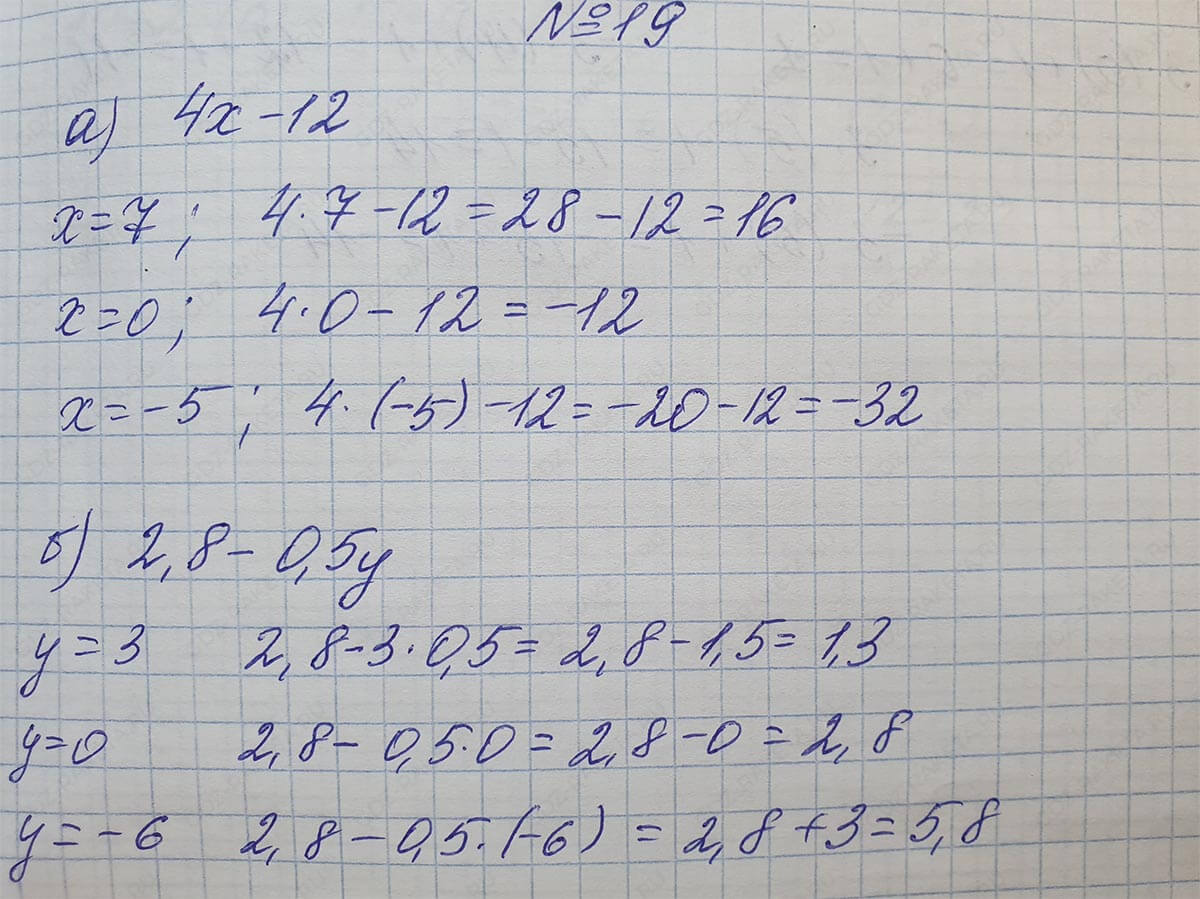 №19
а) 4x-12
x=7; 4·7-12=28-12=16
x=0; 4·0-12=-12
x=-5; 4·(-5)-12=-20-12=-32
б) 2,8-0,5y
y=3 2,8-3·0,5=2,8-1,5=1,3
y=0 2,8-0,5·0=2,8-0=2,8
y=-6 2,8-0,5·(-6)=2,8+3=5,8